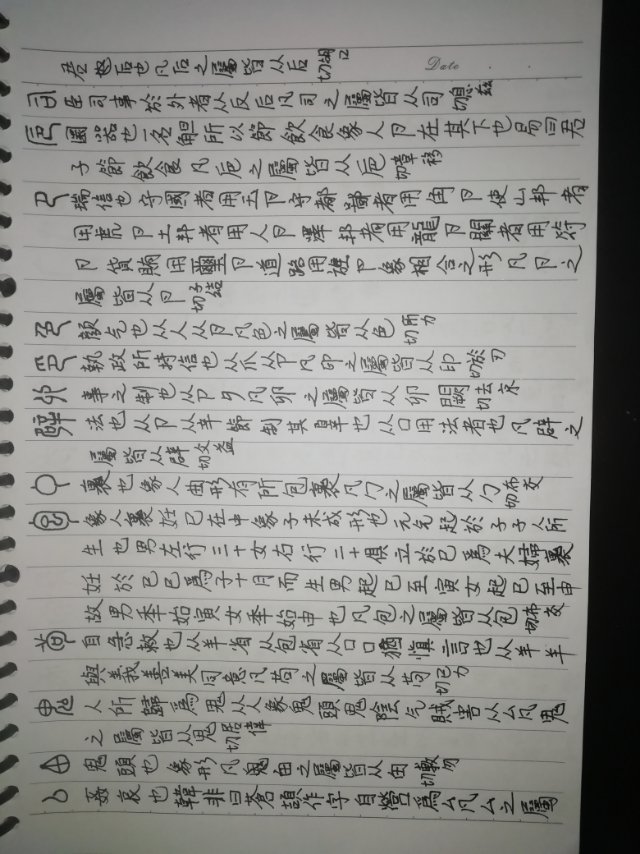 君也后也凡后之屬皆从后 切胡口
Date
司 臣司事於外者从反后凡司之屬皆从司 切息茲
卮 圜器也一名觛所以節飲食象人卪在其下也易曰君
子節飲食凡卮之屬皆从卮 切章移
卪 瑞信也守國者用玉卪守都鄙者用角卪使山邦者
用虎卪土邦者用人卪澤邦者用龍卪門關者用符
卪貨賄用璽卪道路用旌卪象相合之形凡卪之
屬皆从卪 切子結
色 顏气也从人从卪凡色之屬皆从色 切所力
印 執政所持信也从爪从卪凡印之屬皆从印 切於刃
卯 事之制也从卪𠨎凡卯之屬皆从卯 闕切去京
辟 法也从卪从辛節制其辠也从口用法者也凡辟之
屬皆从辟 切父益
勹 裹也象人曲形有所包裹凡勹之屬皆从勹 切布交
包 象人裹妊巳在中象子未成形也元气起於子子人所
生也男左行三十女右行二十俱立於巳爲夫婦裹
妊於巳巳爲子十月而生男起巳至寅女起巳至申
故男秊始寅女秊始申也凡包之屬皆从包 切布交
茍 自急敕也从羊省从包省从口口猶慎言也从羊羊
與義善美同意凡茍之屬皆从茍 切己力
鬼 人所歸爲鬼从人象鬼頭鬼陰气賊害从厶凡鬼
之屬皆从鬼 切居偉
甶 鬼頭也象形凡甶之屬皆从甶 切敷勿
厶 姦衺也韓非曰蒼頡作字自營爲厶凡厶之屬